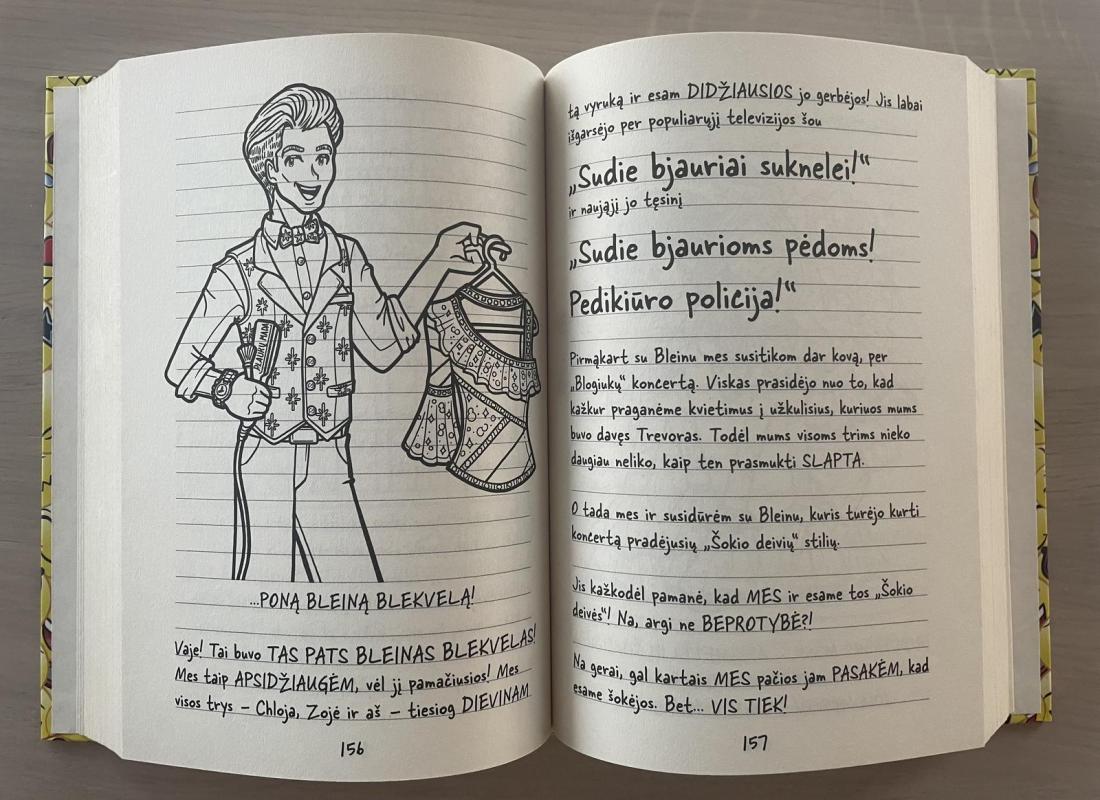 PLAUKŲ MADA
...PONĄ BLEINĄ BLEKVELĄ!
Vaje! Tai buvo TAS PATS BLEINAS BLEKVELAS!
Mes taip APSIDŽIAUGĖM, vėl jį pamačiusios! Mes
visos trys – Chloja, Zojė ir aš – tiesiog DIEVINAM
156
tą vyruką ir esam DIDŽIAUSIOS jo gerbėjos! Jis labai
išgarsėjo per populiarųjį televizijos šou
„Sudie bjauriai suknelei!“
ir naująjį jo tęsinį
„Sudie bjaurioms pėdoms!
Pedikiūro policija!“
Pirmąkart su Bleinu mes susitikom dar kovą, per
„Blogiukų“ koncertą. Viskas prasidėjo nuo to, kad
kažkur praganėme kvietimus į užkulisius, kuriuos mums
buvo davęs Trevoras. Todėl mums visoms trims nieko
daugiau neliko, kaip ten prasmukti SLAPTA.
O tada mes ir susidūrėm su Bleinu, kuris turėjo kurti
koncertą pradėjusių „Šokio deivių“ stilių.
Jis kažkodėl pamanė, kad MES ir esame tos „Šokio
deivės“! Na, argi ne BEPROTYBĖ?!
Na gerai, gal kartais MES pačios jam PASAKĖM, kad
esame šokėjos. Bet... VIS TIEK!
157